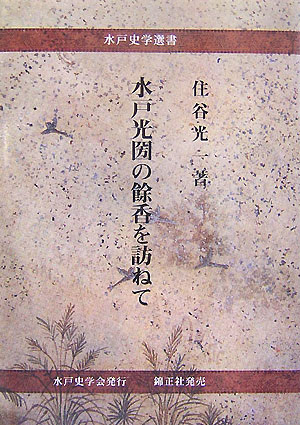 水戸史学選書
住谷光一著
水戸光圀の餘香を訪ねて
水戸史学会発行 錦正社発売